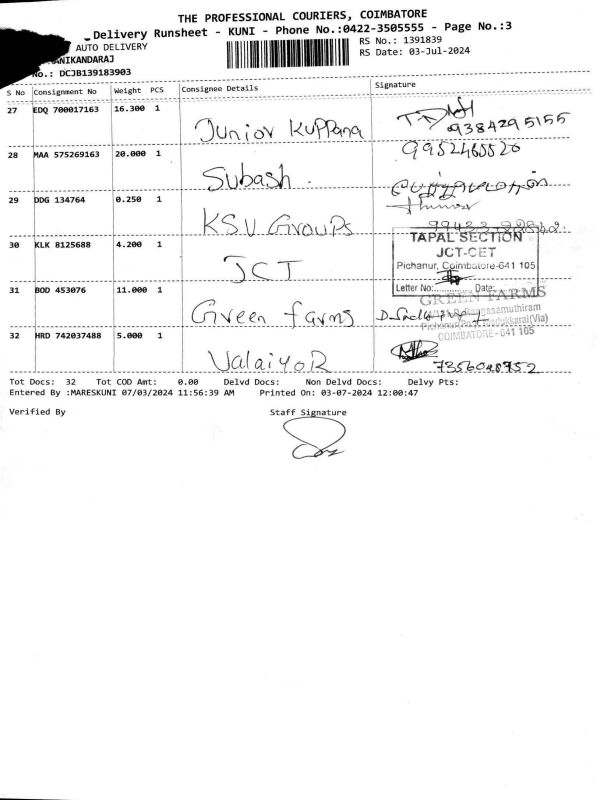 THE PROFESSIONAL COURIERS, COIMBATORE
Delivery Runsheet - KUNI - Phone No.:0422-3505555 - Page No.:3
AUTO DELIVERY
RS No.: 1391839
ANIKANDARAJ
RS Date: 03-Jul-2024
No.: DCJB139183903
S No Consignment No Weight PCS Consignee Details Signature
27 EDQ 700017163 16.300 1 Junior Kuppana
9384295155
28 MAA 575269163 20.000 1 Subash
29 DDG 134764 0.250 1 KSV Groups
30 KLK 8125688 4.200 1 JCT
TAPAL SECTION
JCT-CET
Pichanur, Coimbatore-641 105
Letter No: Date:
31 BOD 453076 11.000 1 Green farms
GREEN FARMS
COIMBATORE - 641 105
32 HRD 742037488 5.000 1 ValaiyoR
7356048752
Tot Docs: 32 Tot COD Amt: 0.00 Delvd Docs: Non Delvd Docs: Delvy Pts:
Entered By :MARESKUNI 07/03/2024 11:56:39 AM Printed On: 03-07-2024 12:00:47
Verified By Staff Signature